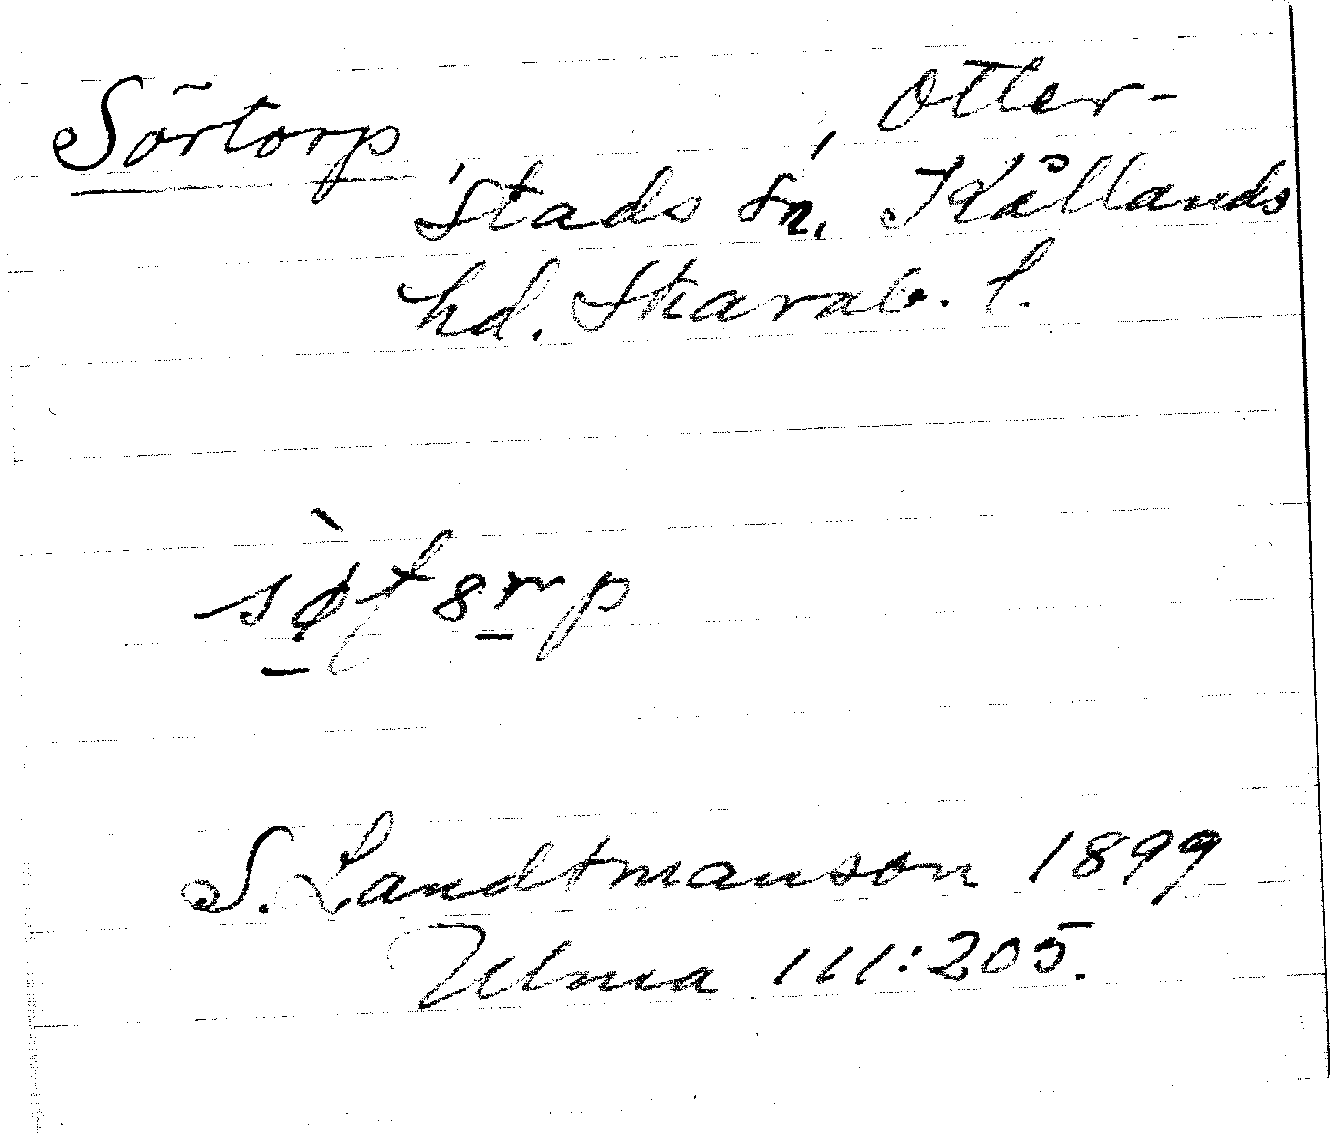 Sörtorp
Otter-
stads sn, Kållands
hd. Skarab. l.
S. Landtmanson 1899
Ulma 111:205.